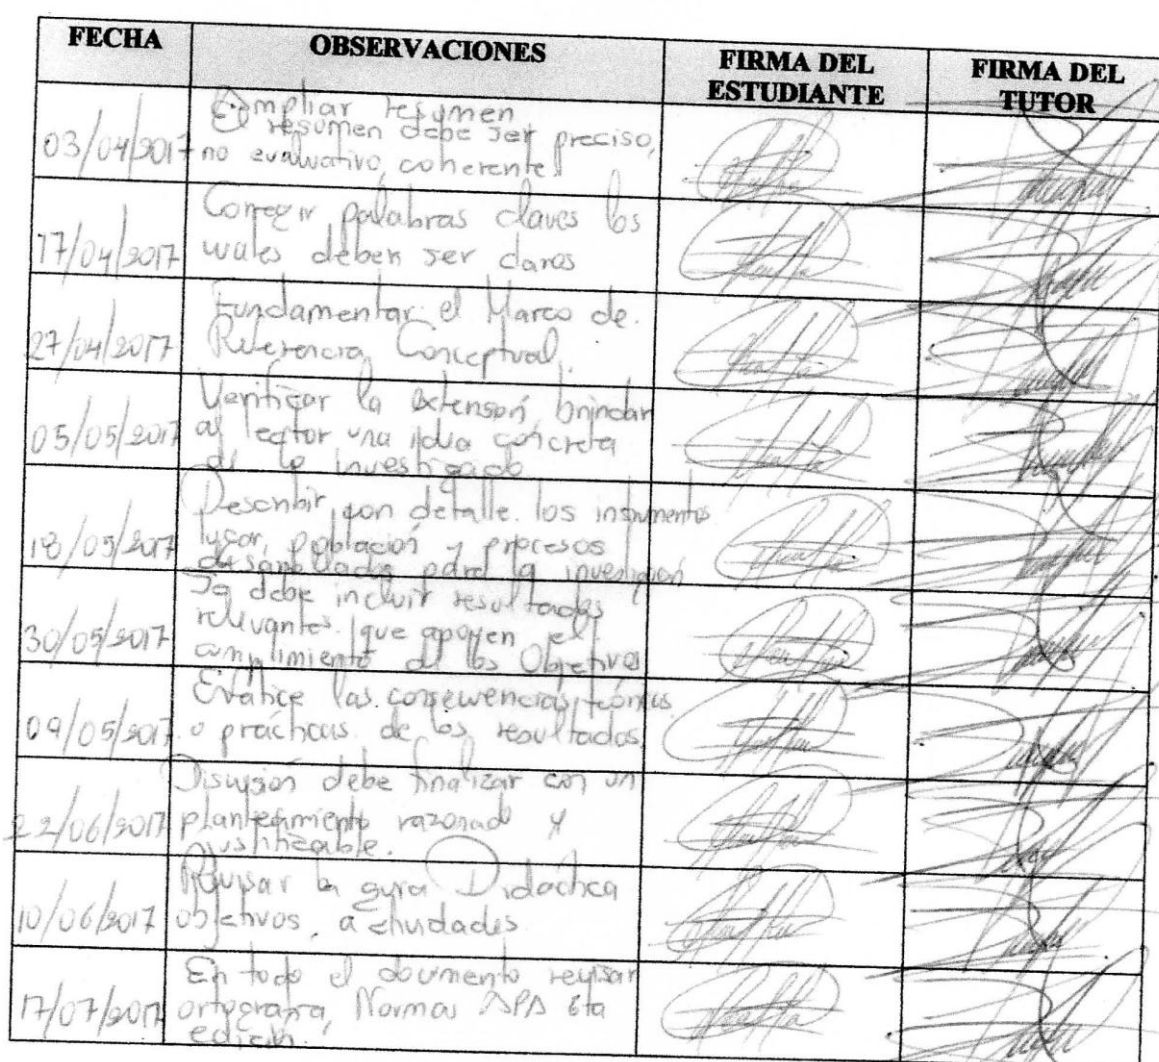 FECHA
OBSERVACIONES
FIRMA DEL
ESTUDIANTE
FIRMA DEL
TUTOR
03/04/2017
Ampliar resumen
El resumen debe ser preciso,
no evaluativo, coherente
17/04/2017
Corregir palabras claves los
cuales deben ser claros
27/04/2017
Fundamentar el Marco de
Referencia Conceptual.
05/05/2017
Verificar la extensón, brindar
al lector una idea concreta
de lo investigado
18/05/2017
Describir con detalle los instrumentos
lugar, población y procesos
para la
30/05/2017
debe incluir resultados
relevantes que apoyen el
cumplimiento de los Objetivos
09/05/2017
las consecuencias teóricas
o prácticas de los resultados
22/06/2017
Discusión debe finalizar con un
planteamiento razonado y
justificable.
10/06/2017
Revisar la guia Didáctica
objetivos, actividades
17/07/2017
En todo el documento revisar
ortografia, Normas APA 6ta
edición.